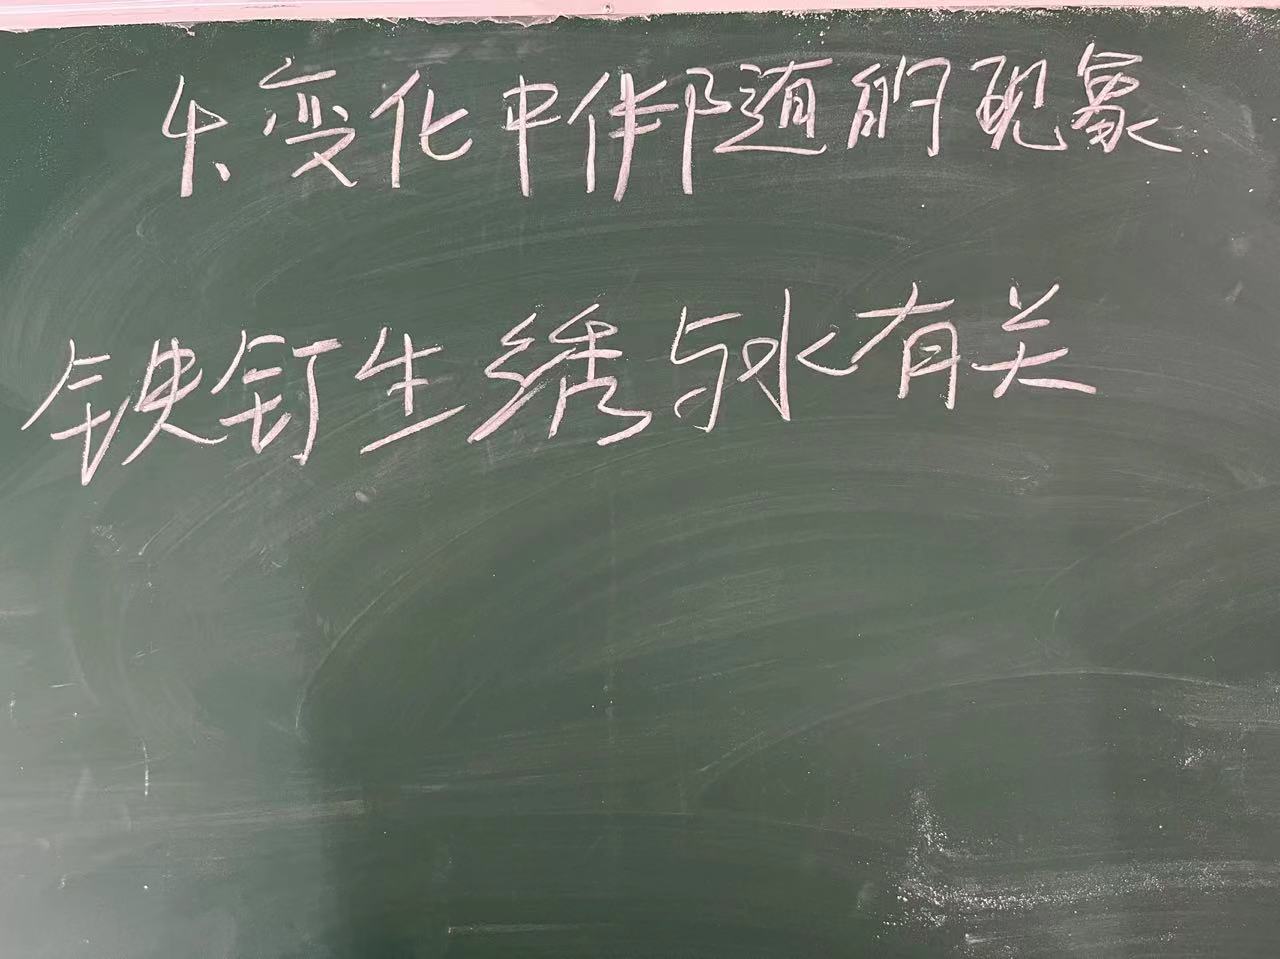 4、变化中伴随的现象
铁钉生绣与水有关